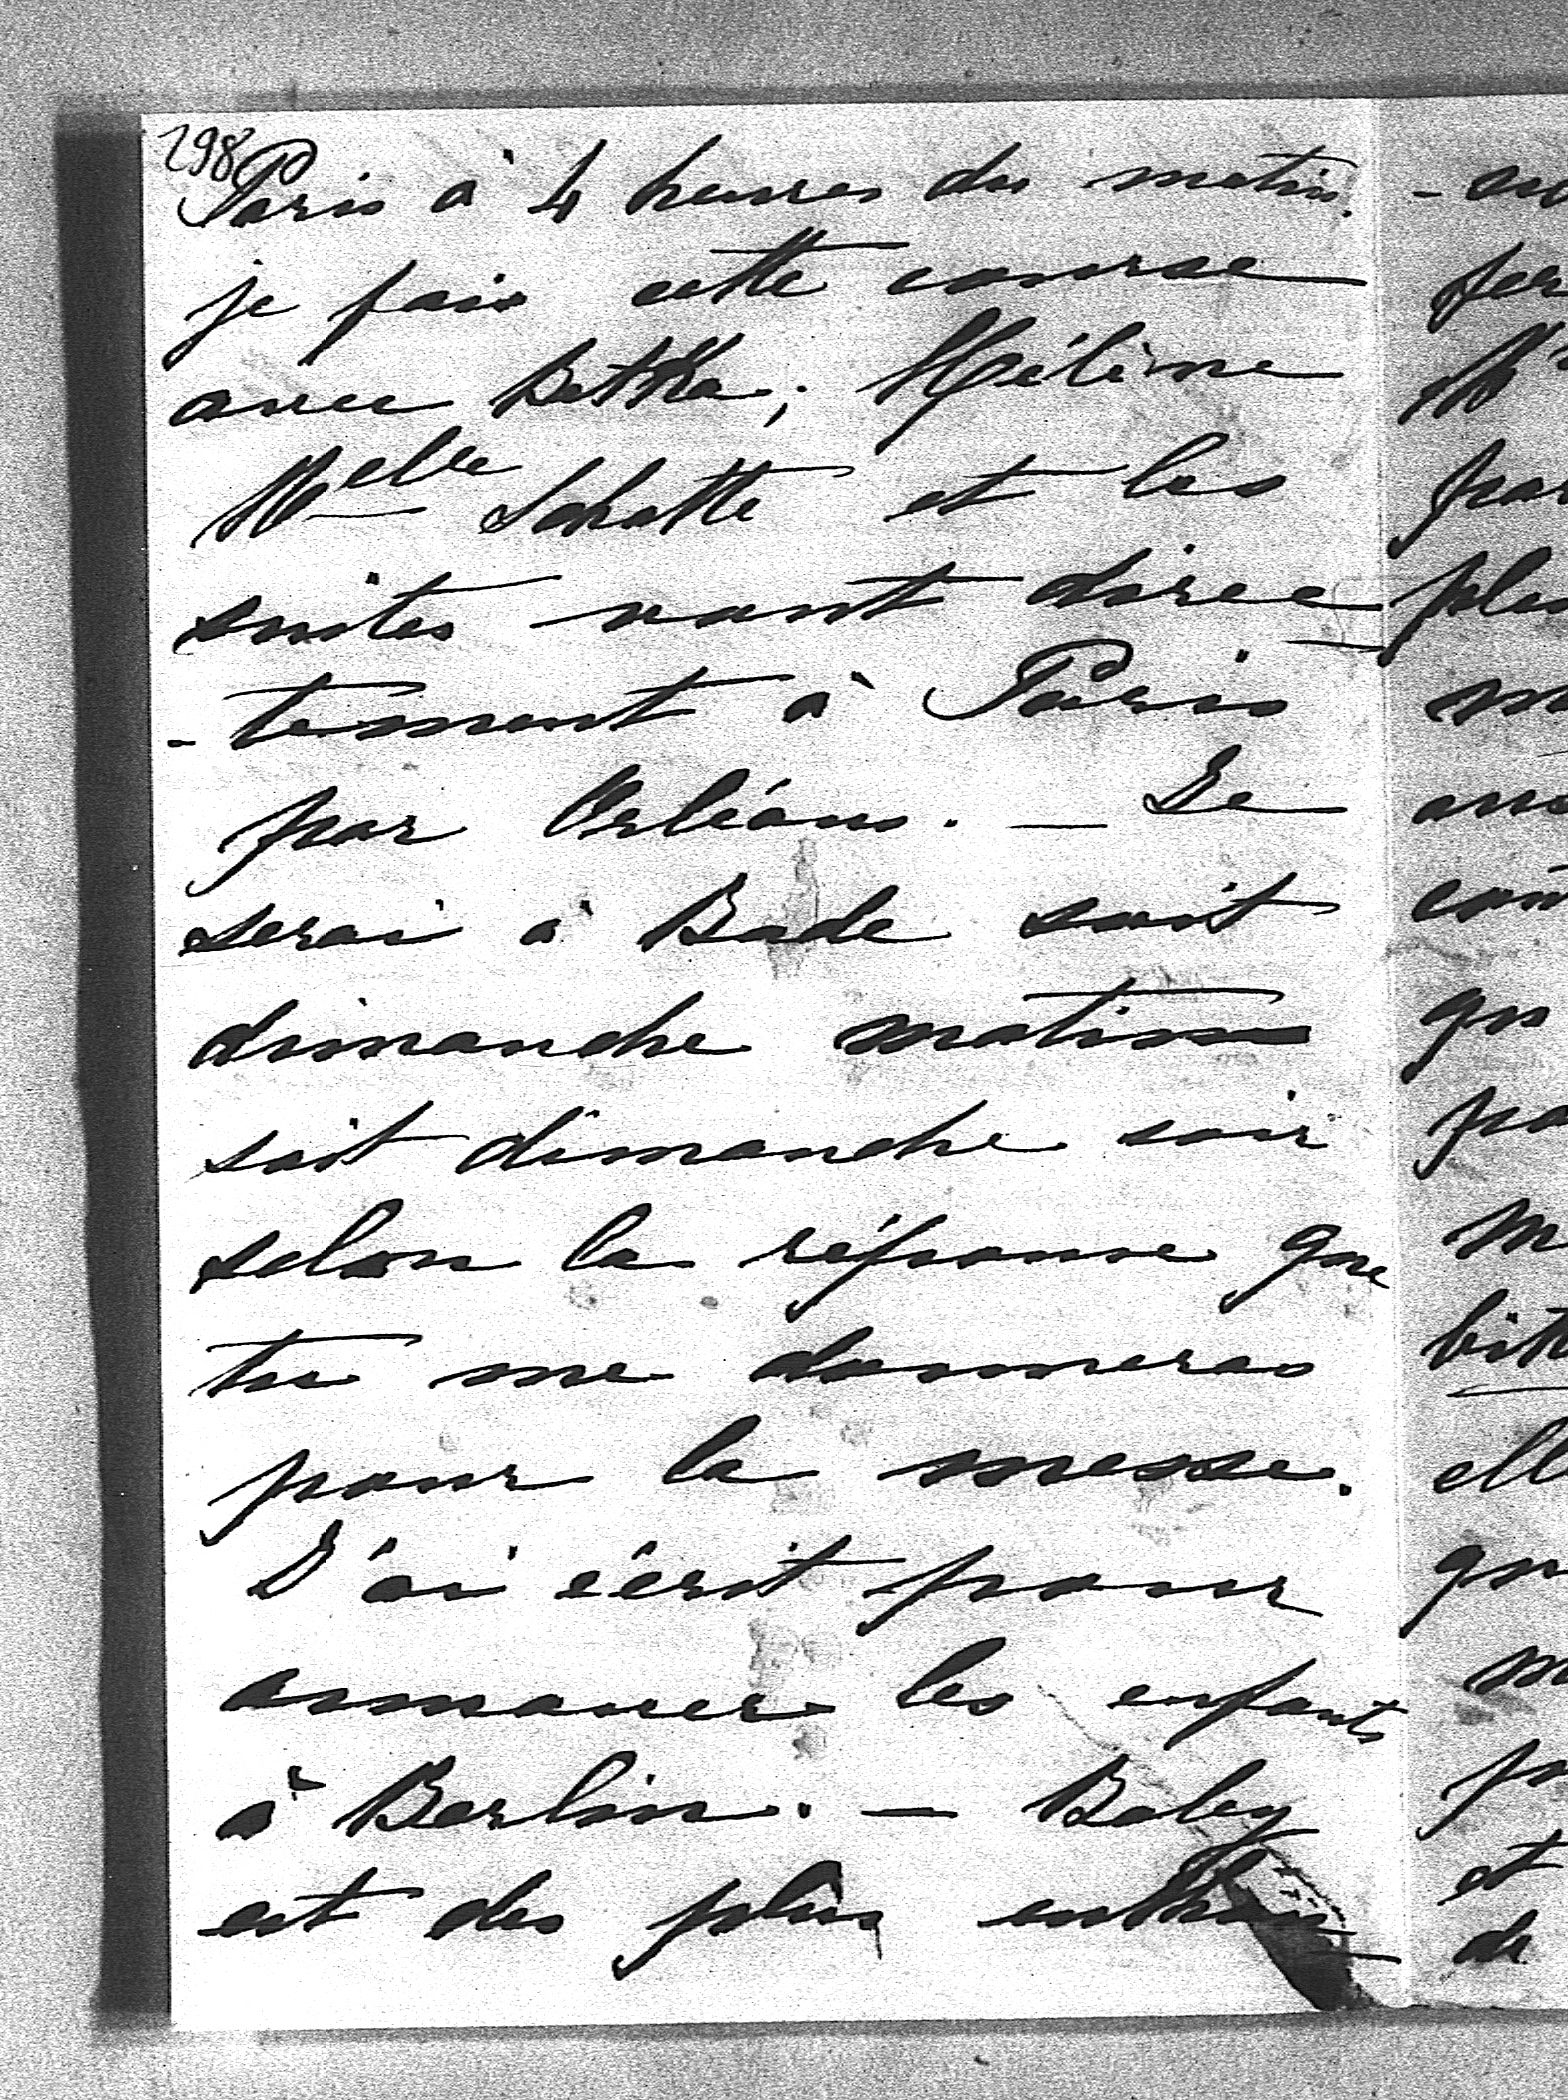 298
Paris à 4 heures du matin.
je fais cette course
avec Betka; Hélène
Melle Schatte et les
suites vont direc
-tement à Paris
par Orléans. — Je
serai à Bade soit
dimanche matin
soit dimanche soir
selon la réponse que
tu me donneras
pour la messe.
J'ai écrit pour
ammener les enfants
à Berlin. — Baby
est des plus enthou-